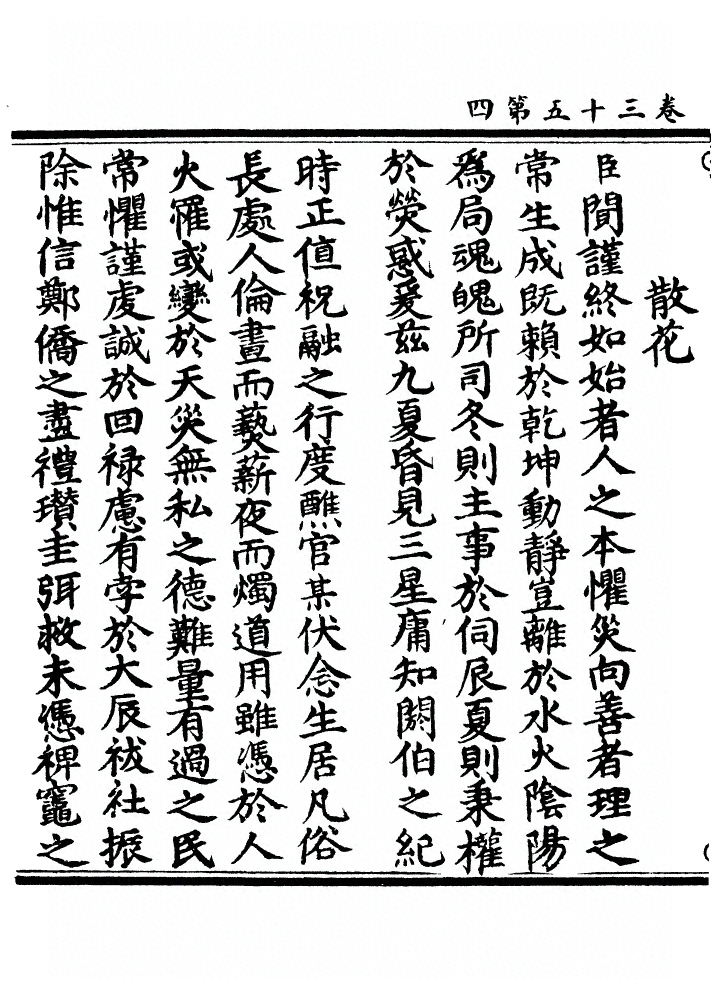 卷三十五第四
散花
臣聞謹終如始者人之本懼災向善者理之
常生成既賴於乾坤動靜豈離於水火陰陽
為局魂魄所司冬則主事於伺辰夏則秉權
於熒惑爰茲九夏昏見三星庸知閼伯之紀
時正值祝融之行度醮官某伏念生居凡俗
長處人倫晝而爇薪夜而燭道用雖憑於人
火罹或變於天災無私之德難量有過之民
常懼謹虔誠於回禄慮有孛於大辰祓社振
除惟信鄭僑之盡禮瓚圭弭救未憑裨竈之